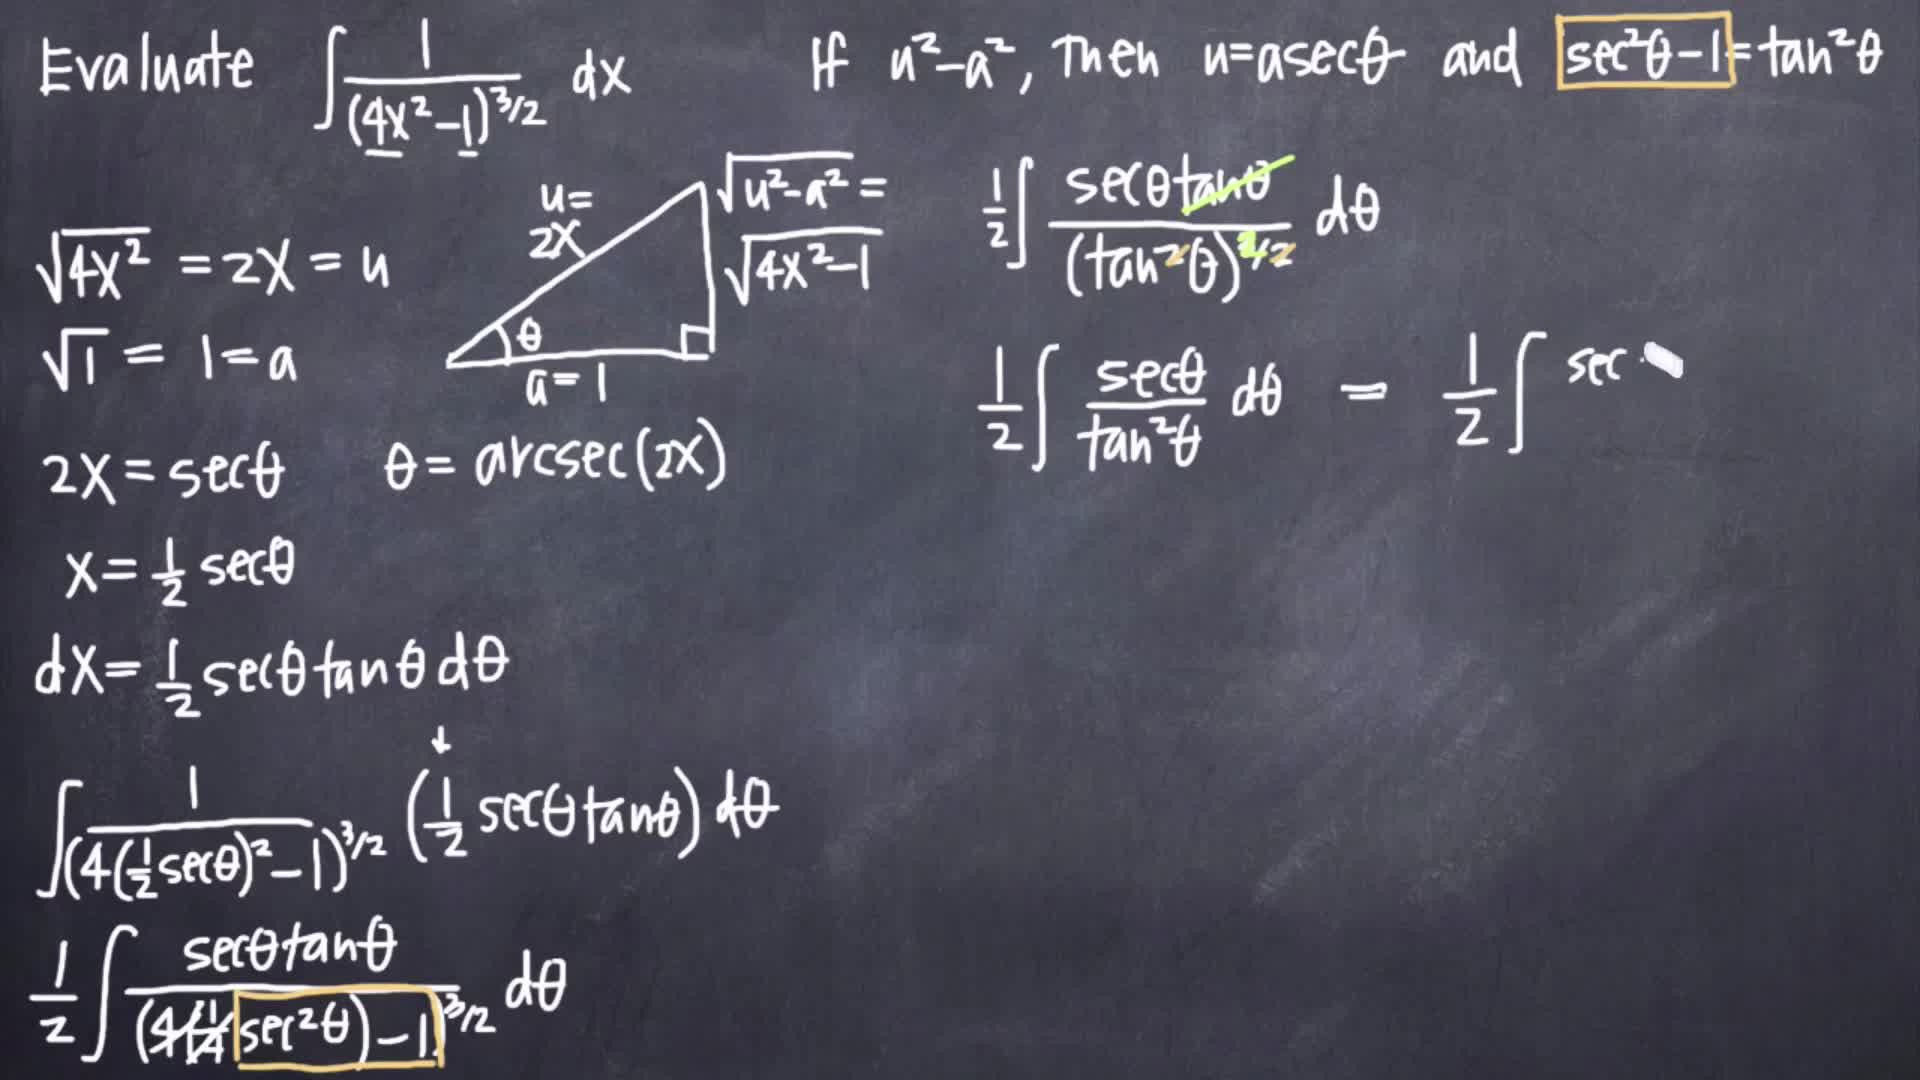 Evaluate ∫ 1/(4x²-1)^3/2 dx
If u²-a², then u=asecθ and sec²θ-1=tan²θ
√4x² = 2x = u
√1 = 1 = a
u= 2x
√u²-a² = √4x²-1
θ
a=1
2x = secθ θ = arcsec(2x)
x = 1/2 secθ
dx = 1/2 secθ tanθ dθ
↓
∫ 1/(4(1/2 secθ)²-1)^3/2 (1/2 secθ tanθ) dθ
1/2 ∫ secθ tanθ/(4(1/4 sec²θ)-1)^3/2 dθ
1/2 ∫ secθ tanθ/(tan²θ)^2/2 dθ
1/2 ∫ secθ/tan²θ dθ = 1/2 ∫ sec